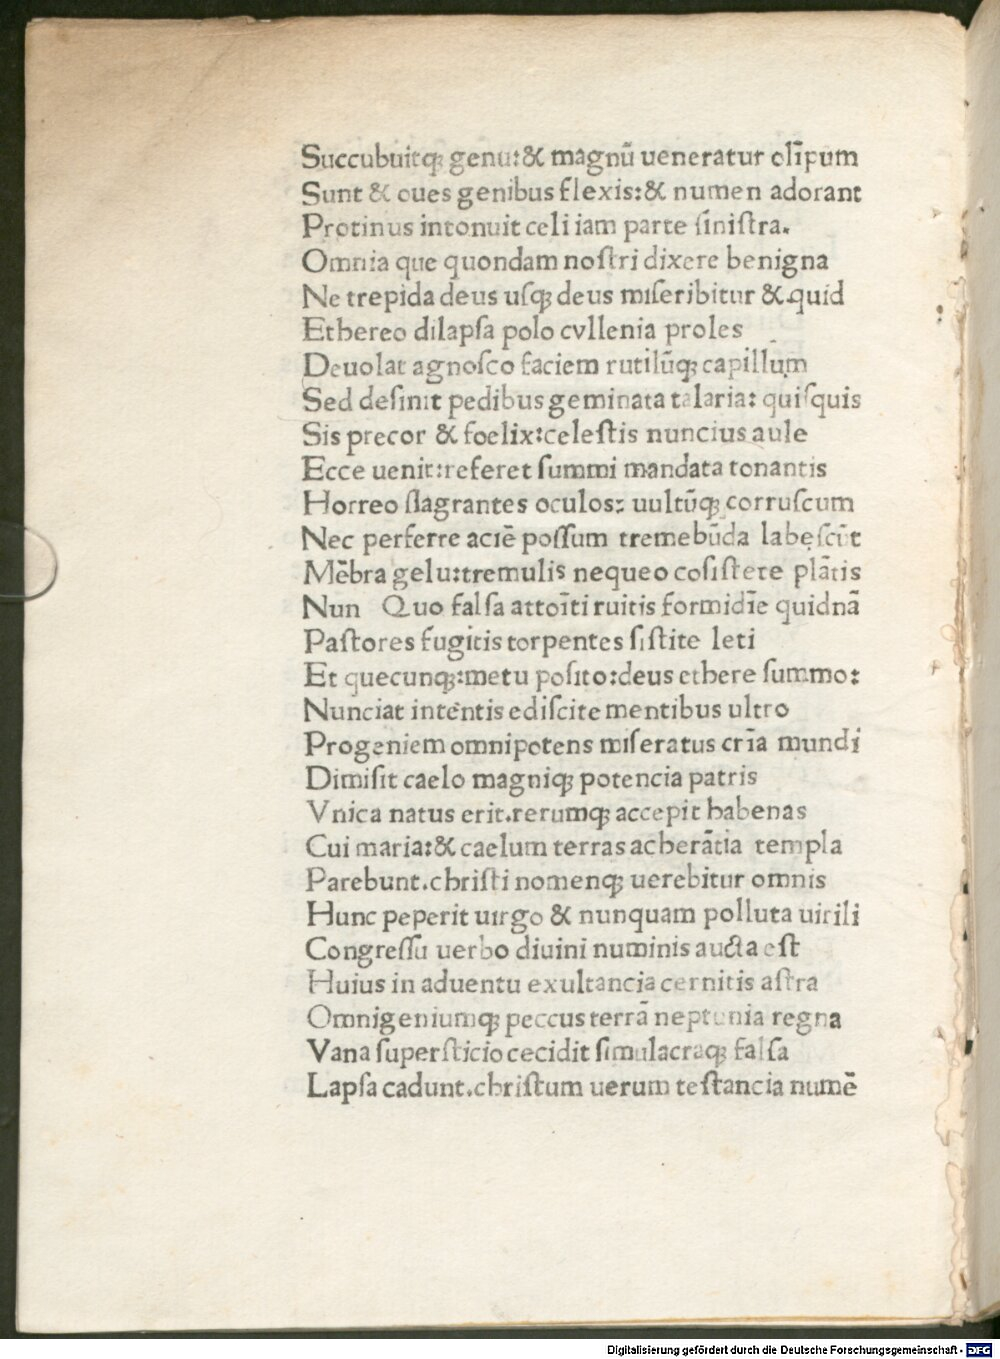 Succubuitqꝫ genu:& magnū ueneratur olīpum
Sunt & oues genibus flexis:& numen adorant
Protinus intonuit celi iam parte siniſtra.
Omnia que quondam noſtri dixere benigna
Ne trepida deus uſqꝫ deus miſeribitur &.quid
Ethereo dilapſa polo cvllenia proles
Deuolat agnoſco faciem rutilūqꝫ capillum
Sed deſinit pedibus geminata talaria: quiſquis
Sis precor & foelix:celeſtis nuncius aule
Ecce uenit:referet ſummi mandata tonantis
Horreo flagrantes oculos: uultūqꝫ corruſcum
Nec perferre aciē poſſum tremebūda labeſcūt
Mēbra gelu:tremulis nequeo coſiſtere plātis
Nun Quo falſa attoīti ruitis formidīe quidnā
Paſtores fugitis torpentes ſiſtite leti
Et quecunqꝫ:metu poſito:deus ethere ſummo:
Nunciat intentis ediſcite mentibus ultro
Progeniem omnipotens miſeratus crīa mundi
Dimiſit caelo magniqꝫ potencia patris
Vnica natus erit.rerumqꝫ accepit habenas
Cui maria:& caelum terras acherātia templa
Parebunt.chriſti nomenqꝫ uerebitur omnis
Hunc peperit uirgo & nunquam polluta uirili
Congreſſu uerbo diuini numinis aucta eſt
Huius in aduentu exultancia cernitis aſtra
Omnigeniumqꝫ peccus terrā neptunia regna
Vana ſuperſticio cecidit ſimulacraqꝫ falſa
Lapſa cadunt.chriſtum uerum teſtancia numē
Digitalisierung gefördert durch die Deutsche Forschungsgemeinschaft - DFG